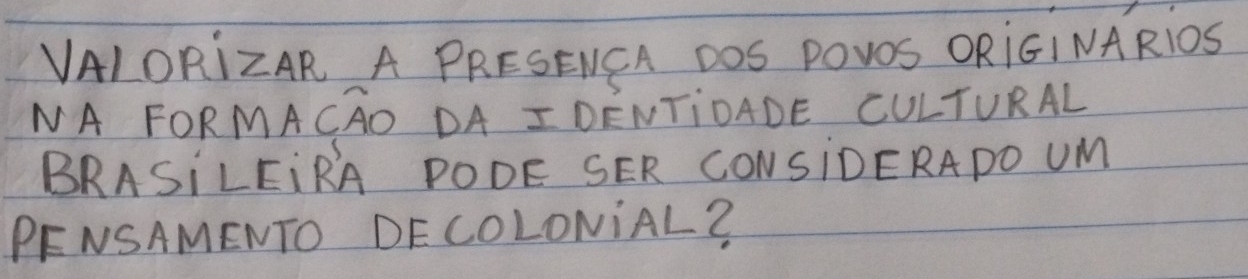 VALORIZAR A PRESENÇA DOS POVOS ORIGINÁRIOS
NA FORMAÇÃO DA IDENTIDADE CULTURAL
BRASILEIRA PODE SER CONSIDERADO UM
PENSAMENTO DECOLONIAL?